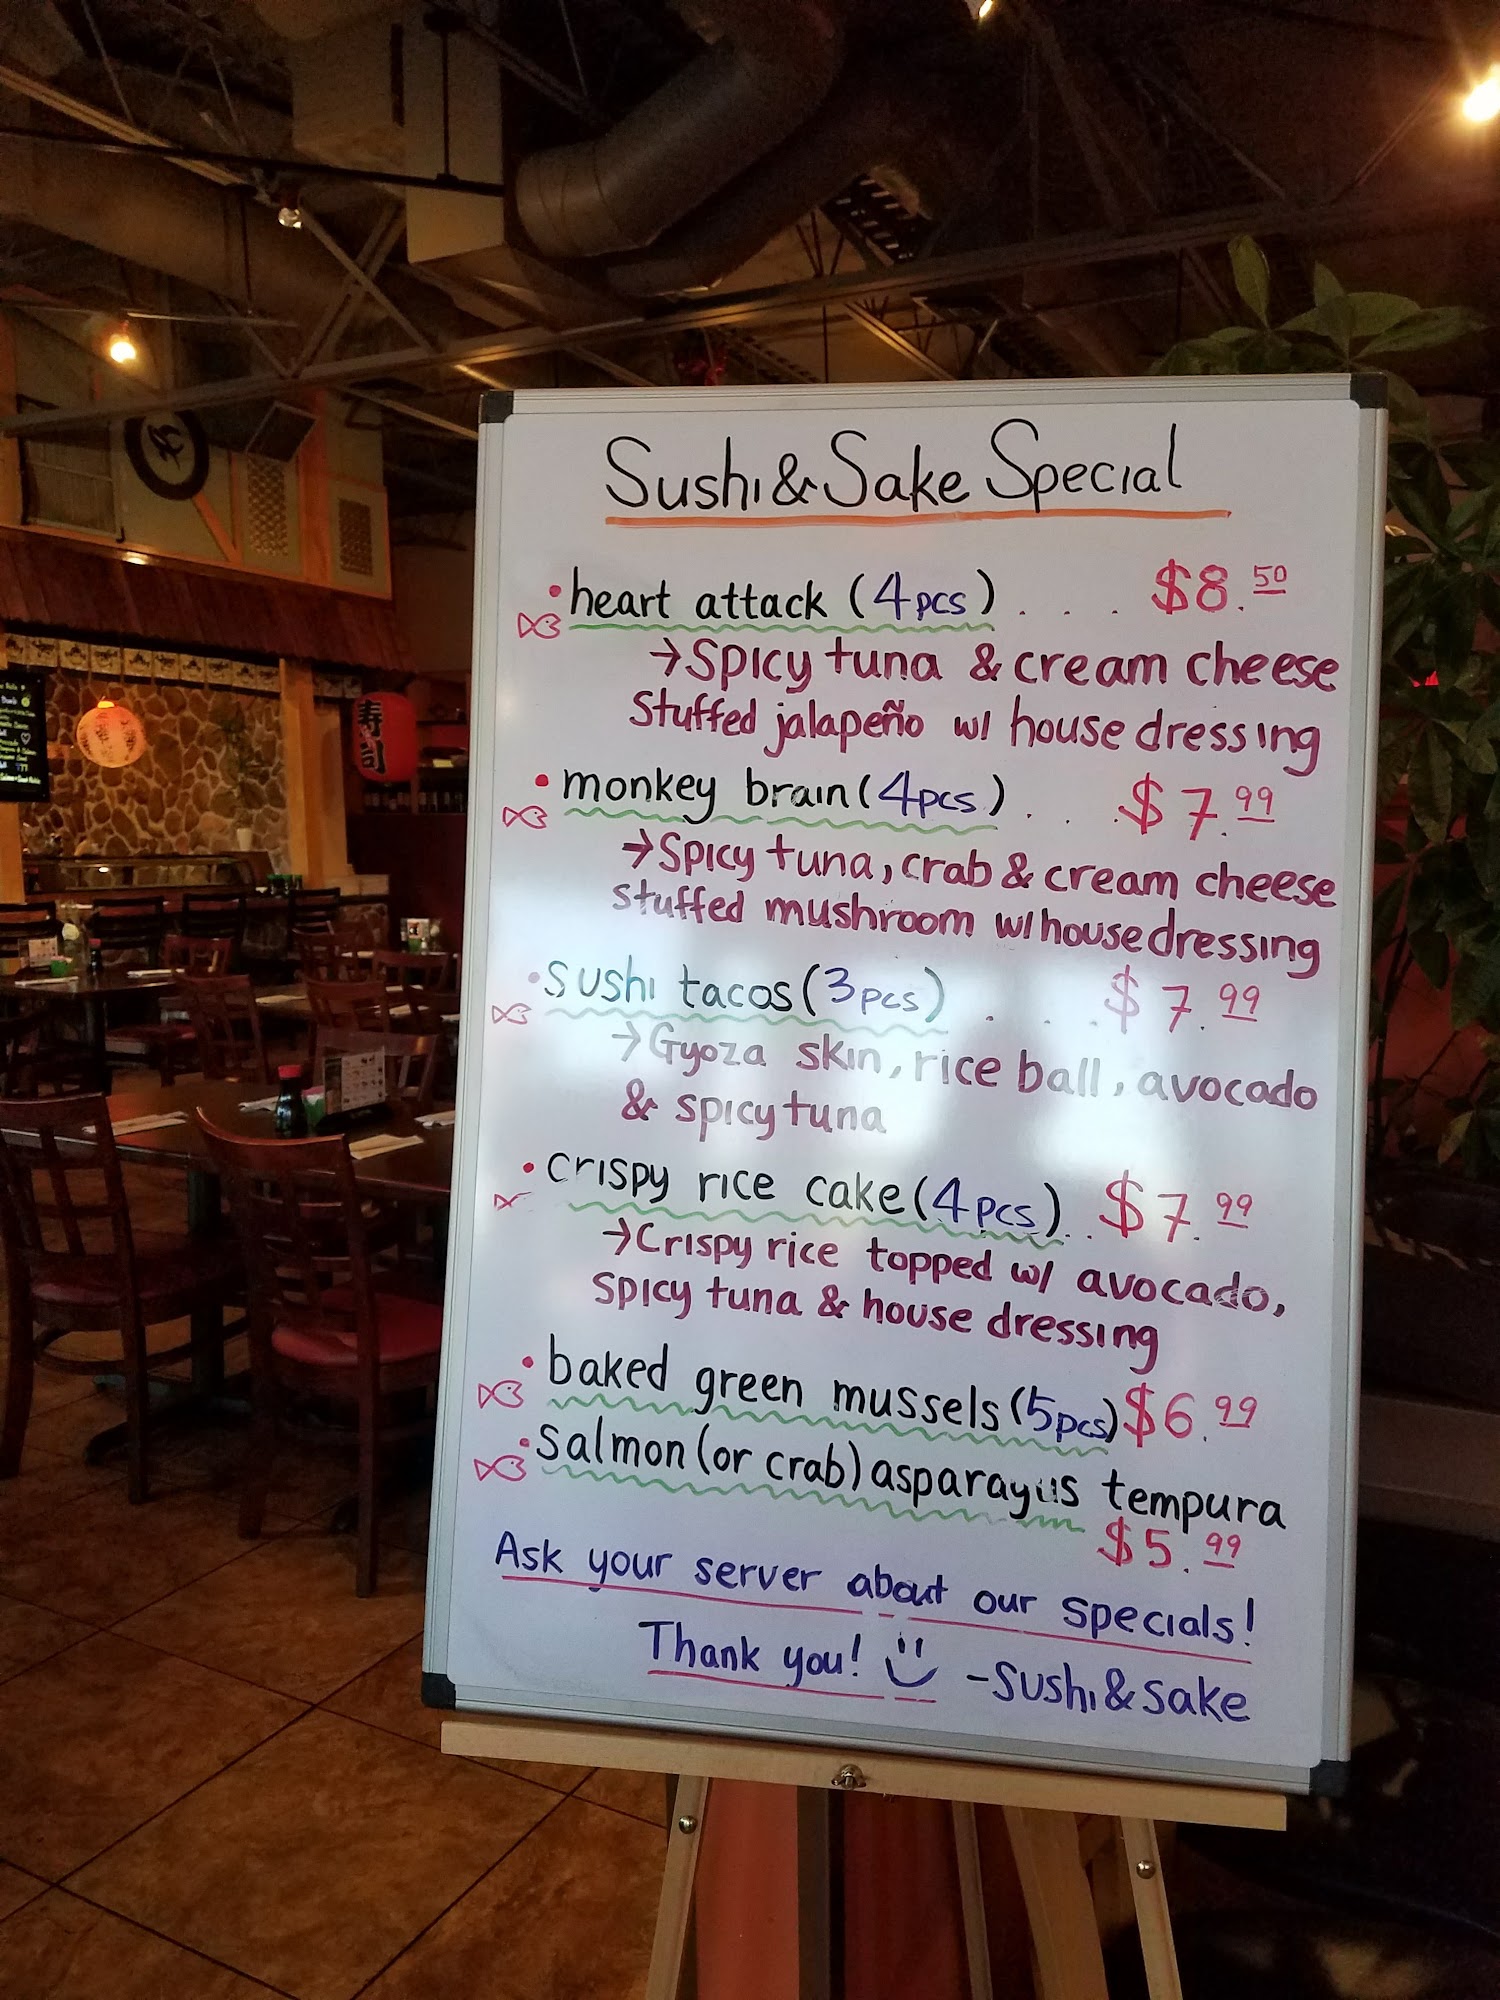 Sushi & Sake Special
• heart attack (4pcs) . . . . $8.50
→ Spicy tuna & cream cheese
Stuffed jalapeño w/ house dressing
• monkey brain (4pcs) . . . . $7.99
→ Spicy tuna, crab & cream cheese
stuffed mushroom w/ house dressing
• Sushi tacos (3pcs) . . . . $7.99
→ Gyoza skin, rice ball, avocado
& spicy tuna
• Crispy rice cake (4pcs) . . $7.99
→ Crispy rice topped w/ avocado,
Spicy tuna & house dressing
• baked green mussels (5pcs) $6.99
• Salmon (or crab) asparagus tempura
$5.99
Ask your server about our specials!
Thank you! -Sushi & Sake
寿司